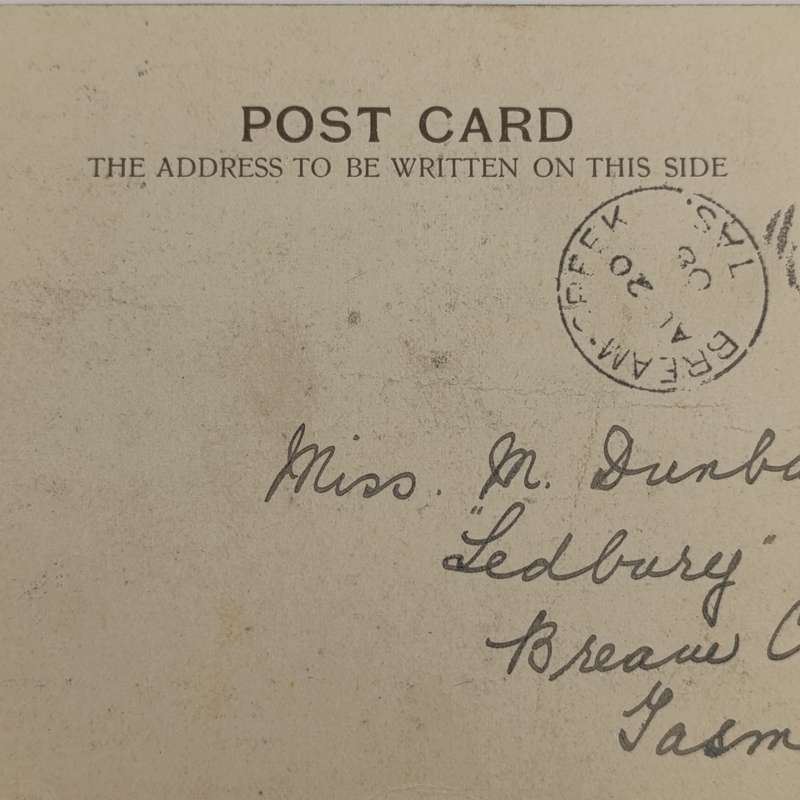 POST CARD
THE ADDRESS TO BE WRITTEN ON THIS SIDE
BREAM CREEK TAS.
AU 20
08
Miss. M. Dunba
"Ledbury"
Bream C
Tasm